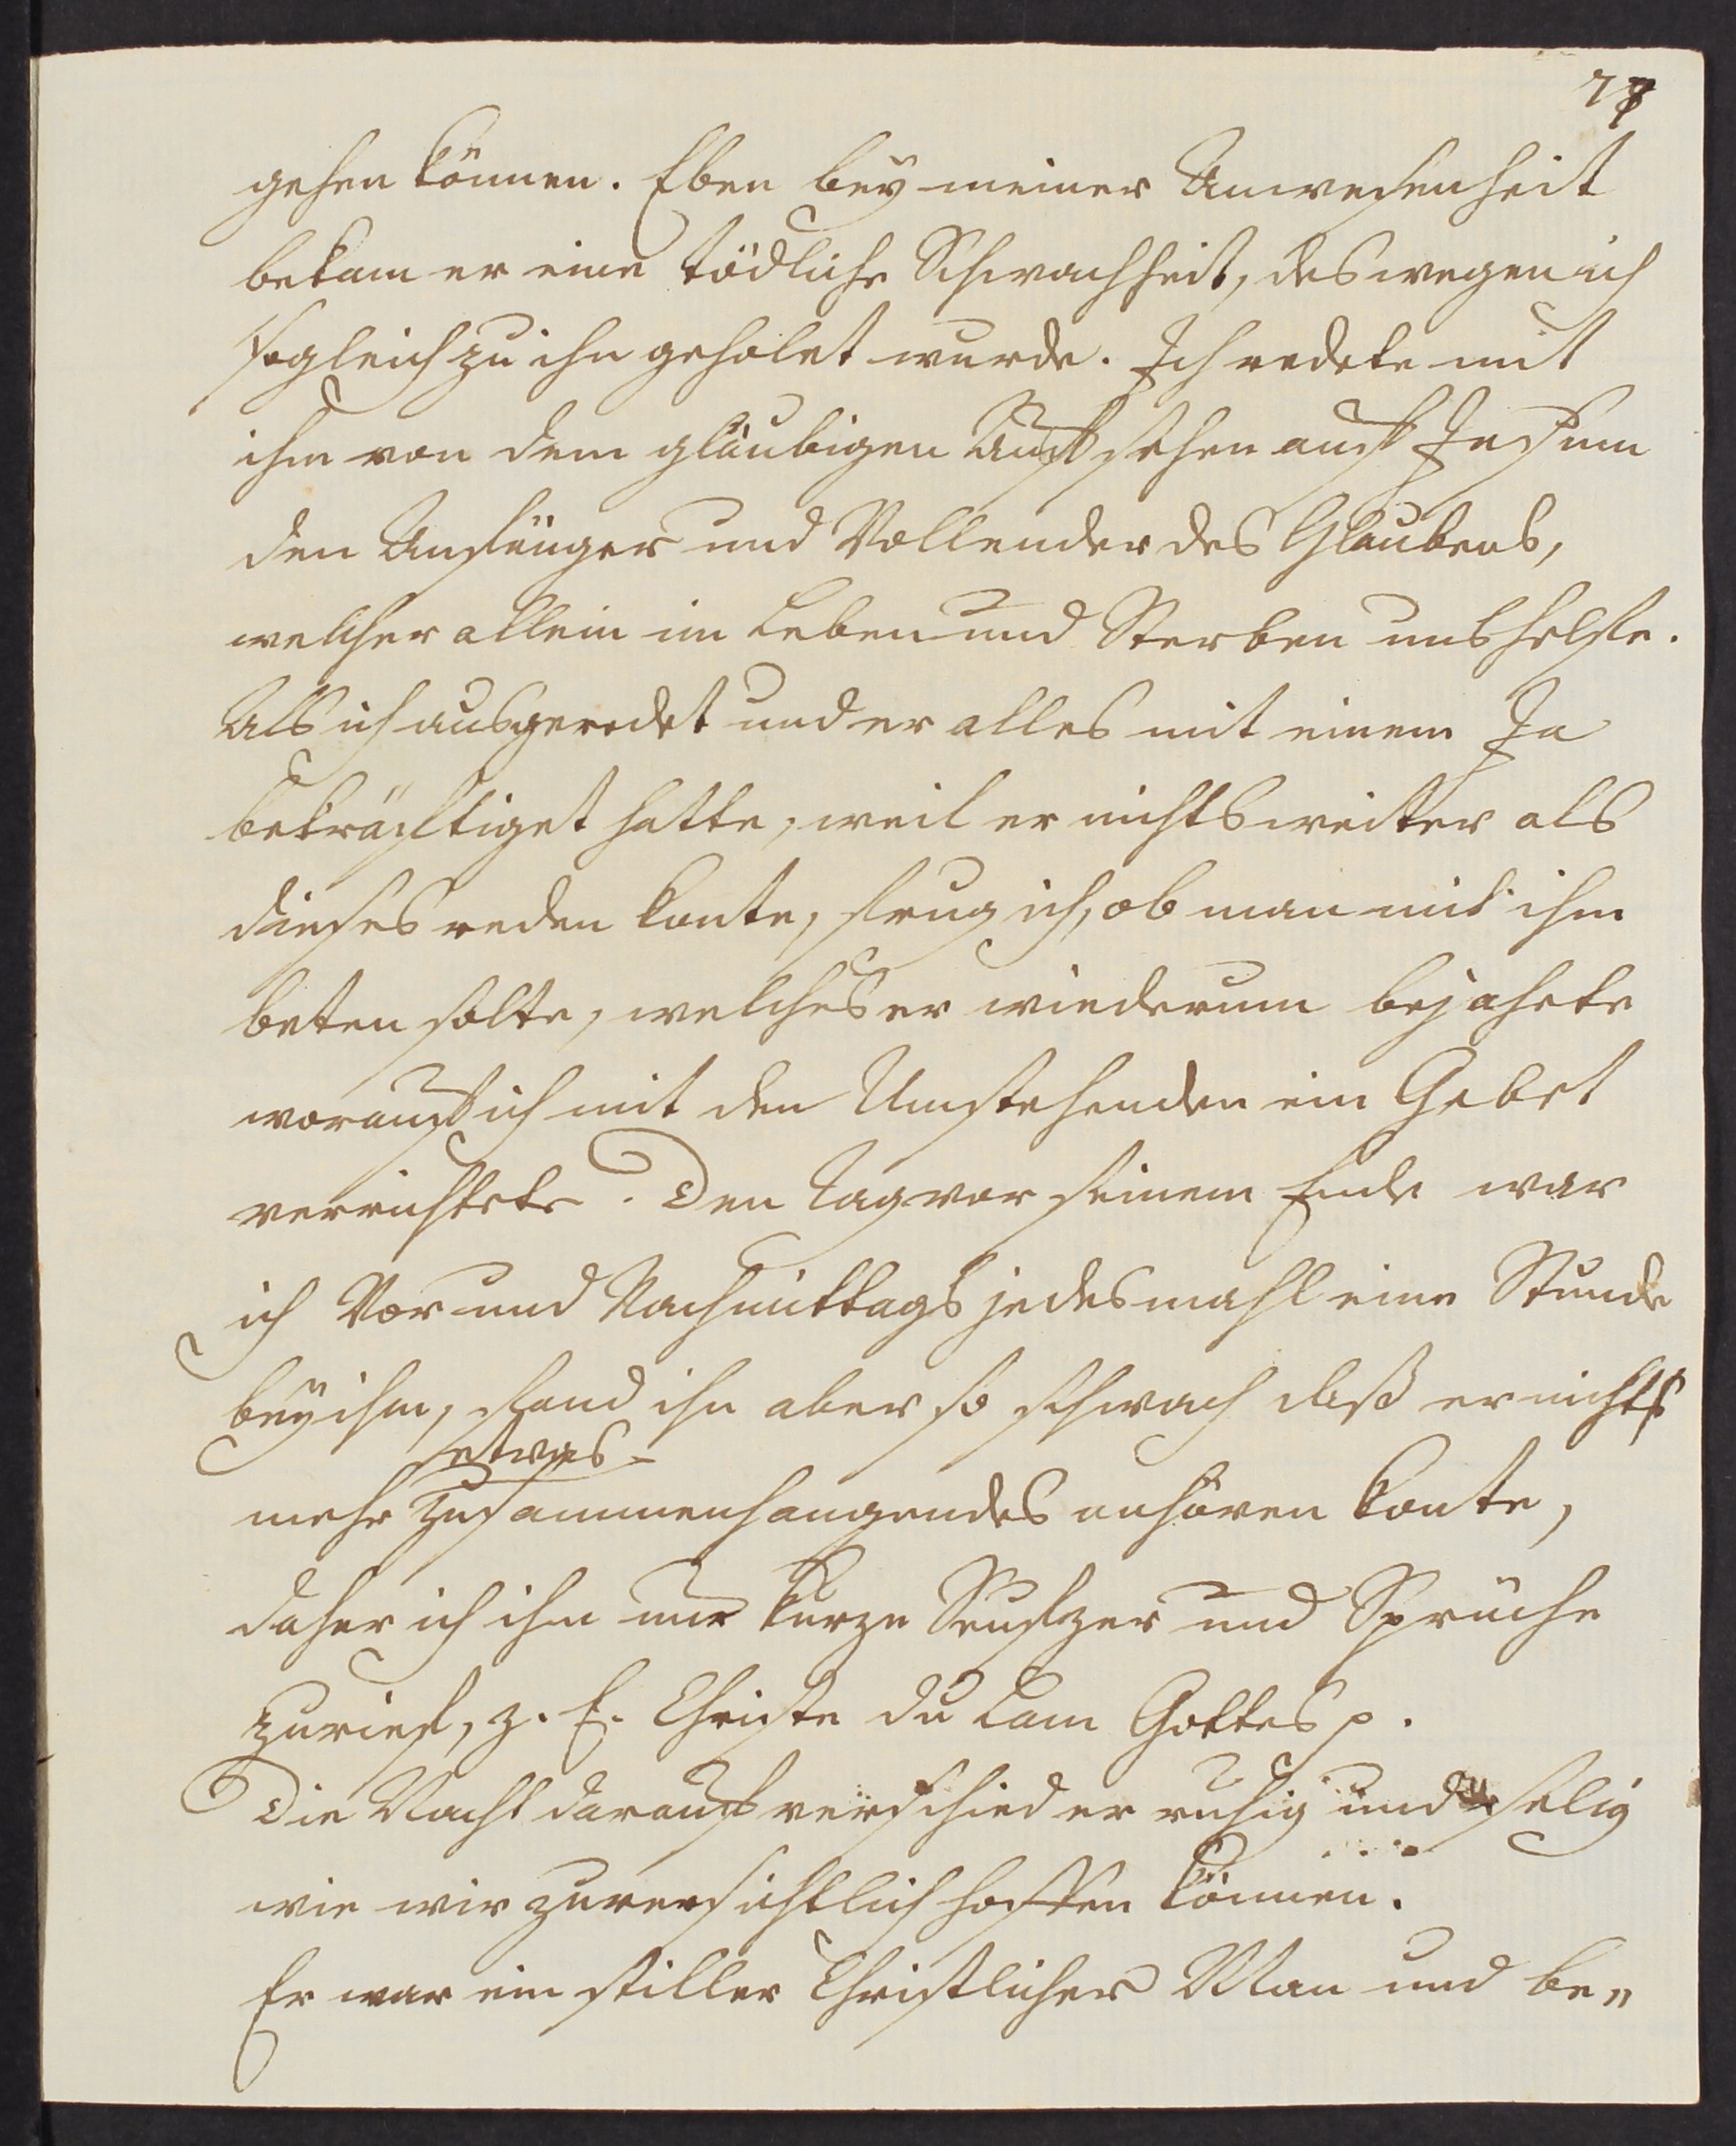 gehen können. Eben bey meiner Anwesenheit
bekam er eine tödliche Schwachheit, deswegen ich
sogleich zu ihn geholet wurde. Ich redete mit
ihm von dem gläubigen Auffsehen auff Jesum
den Anfänger und Vollender des Glaubens,
welcher allein im Leben und Sterben uns helffe.
Als ich ausgeredet und er alles mit einem Ja
bekräfftiget hatte, weil er nichts weiter als
dieses reden konte, frug ich, ob man mit ihm
beten solte, welches er wiederum bejahete
worauff ich mit den Umstehenden ein Gebet
verrichtete. Den Tag vor seinem Ende war
ich Vor und Nachmittags jedesmahl eine Stunde
bey ihm, fand ihn aber so schwach daß er nichts
etwas
mehr zusammenhangendes anhören konte,
daher ich ihm nur kurze Seufzer und Sprüche
zurief, z. E. Christe du Lam Gottes p.
Die Nacht darauff verschied er ruhig und selig
wie wir zuversichtlich hoffen können.
Er war ein stiller Christlicher Man und be„